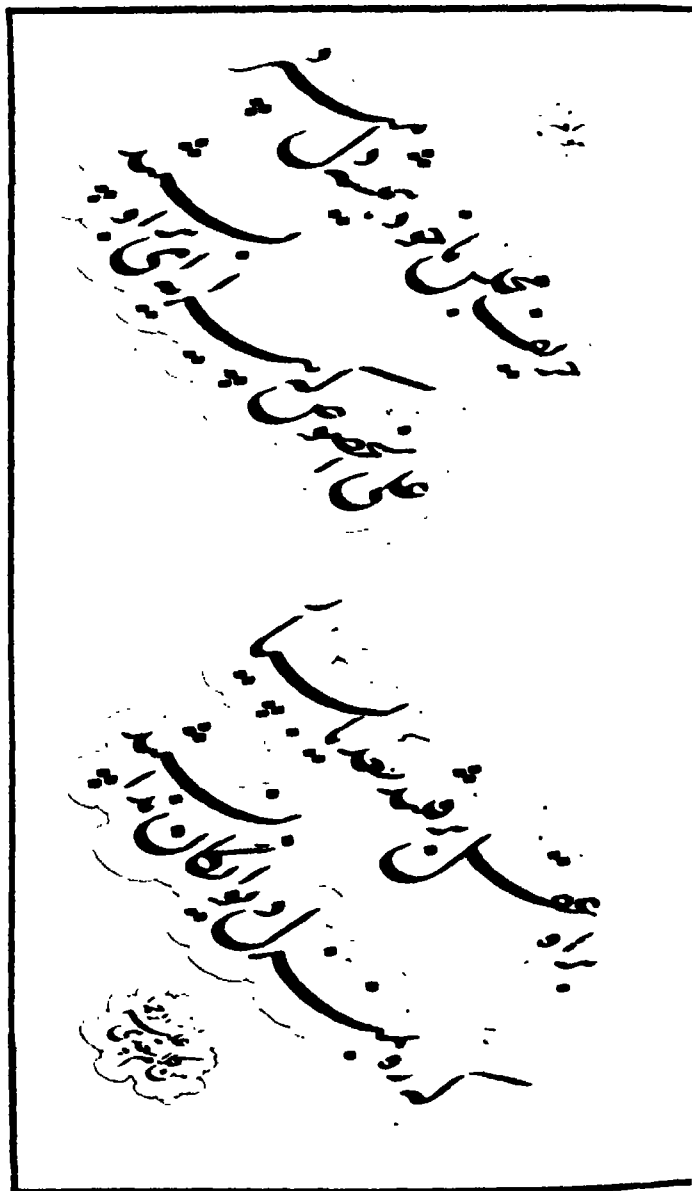 حریف مجلس ما خود همیشه دل میبرد
علی الخصوص که پیرایه‌ای بر او بستند
براه عقل برفتند سعدیا بسیار
که ره بمنزل دیوانگان ندانستند